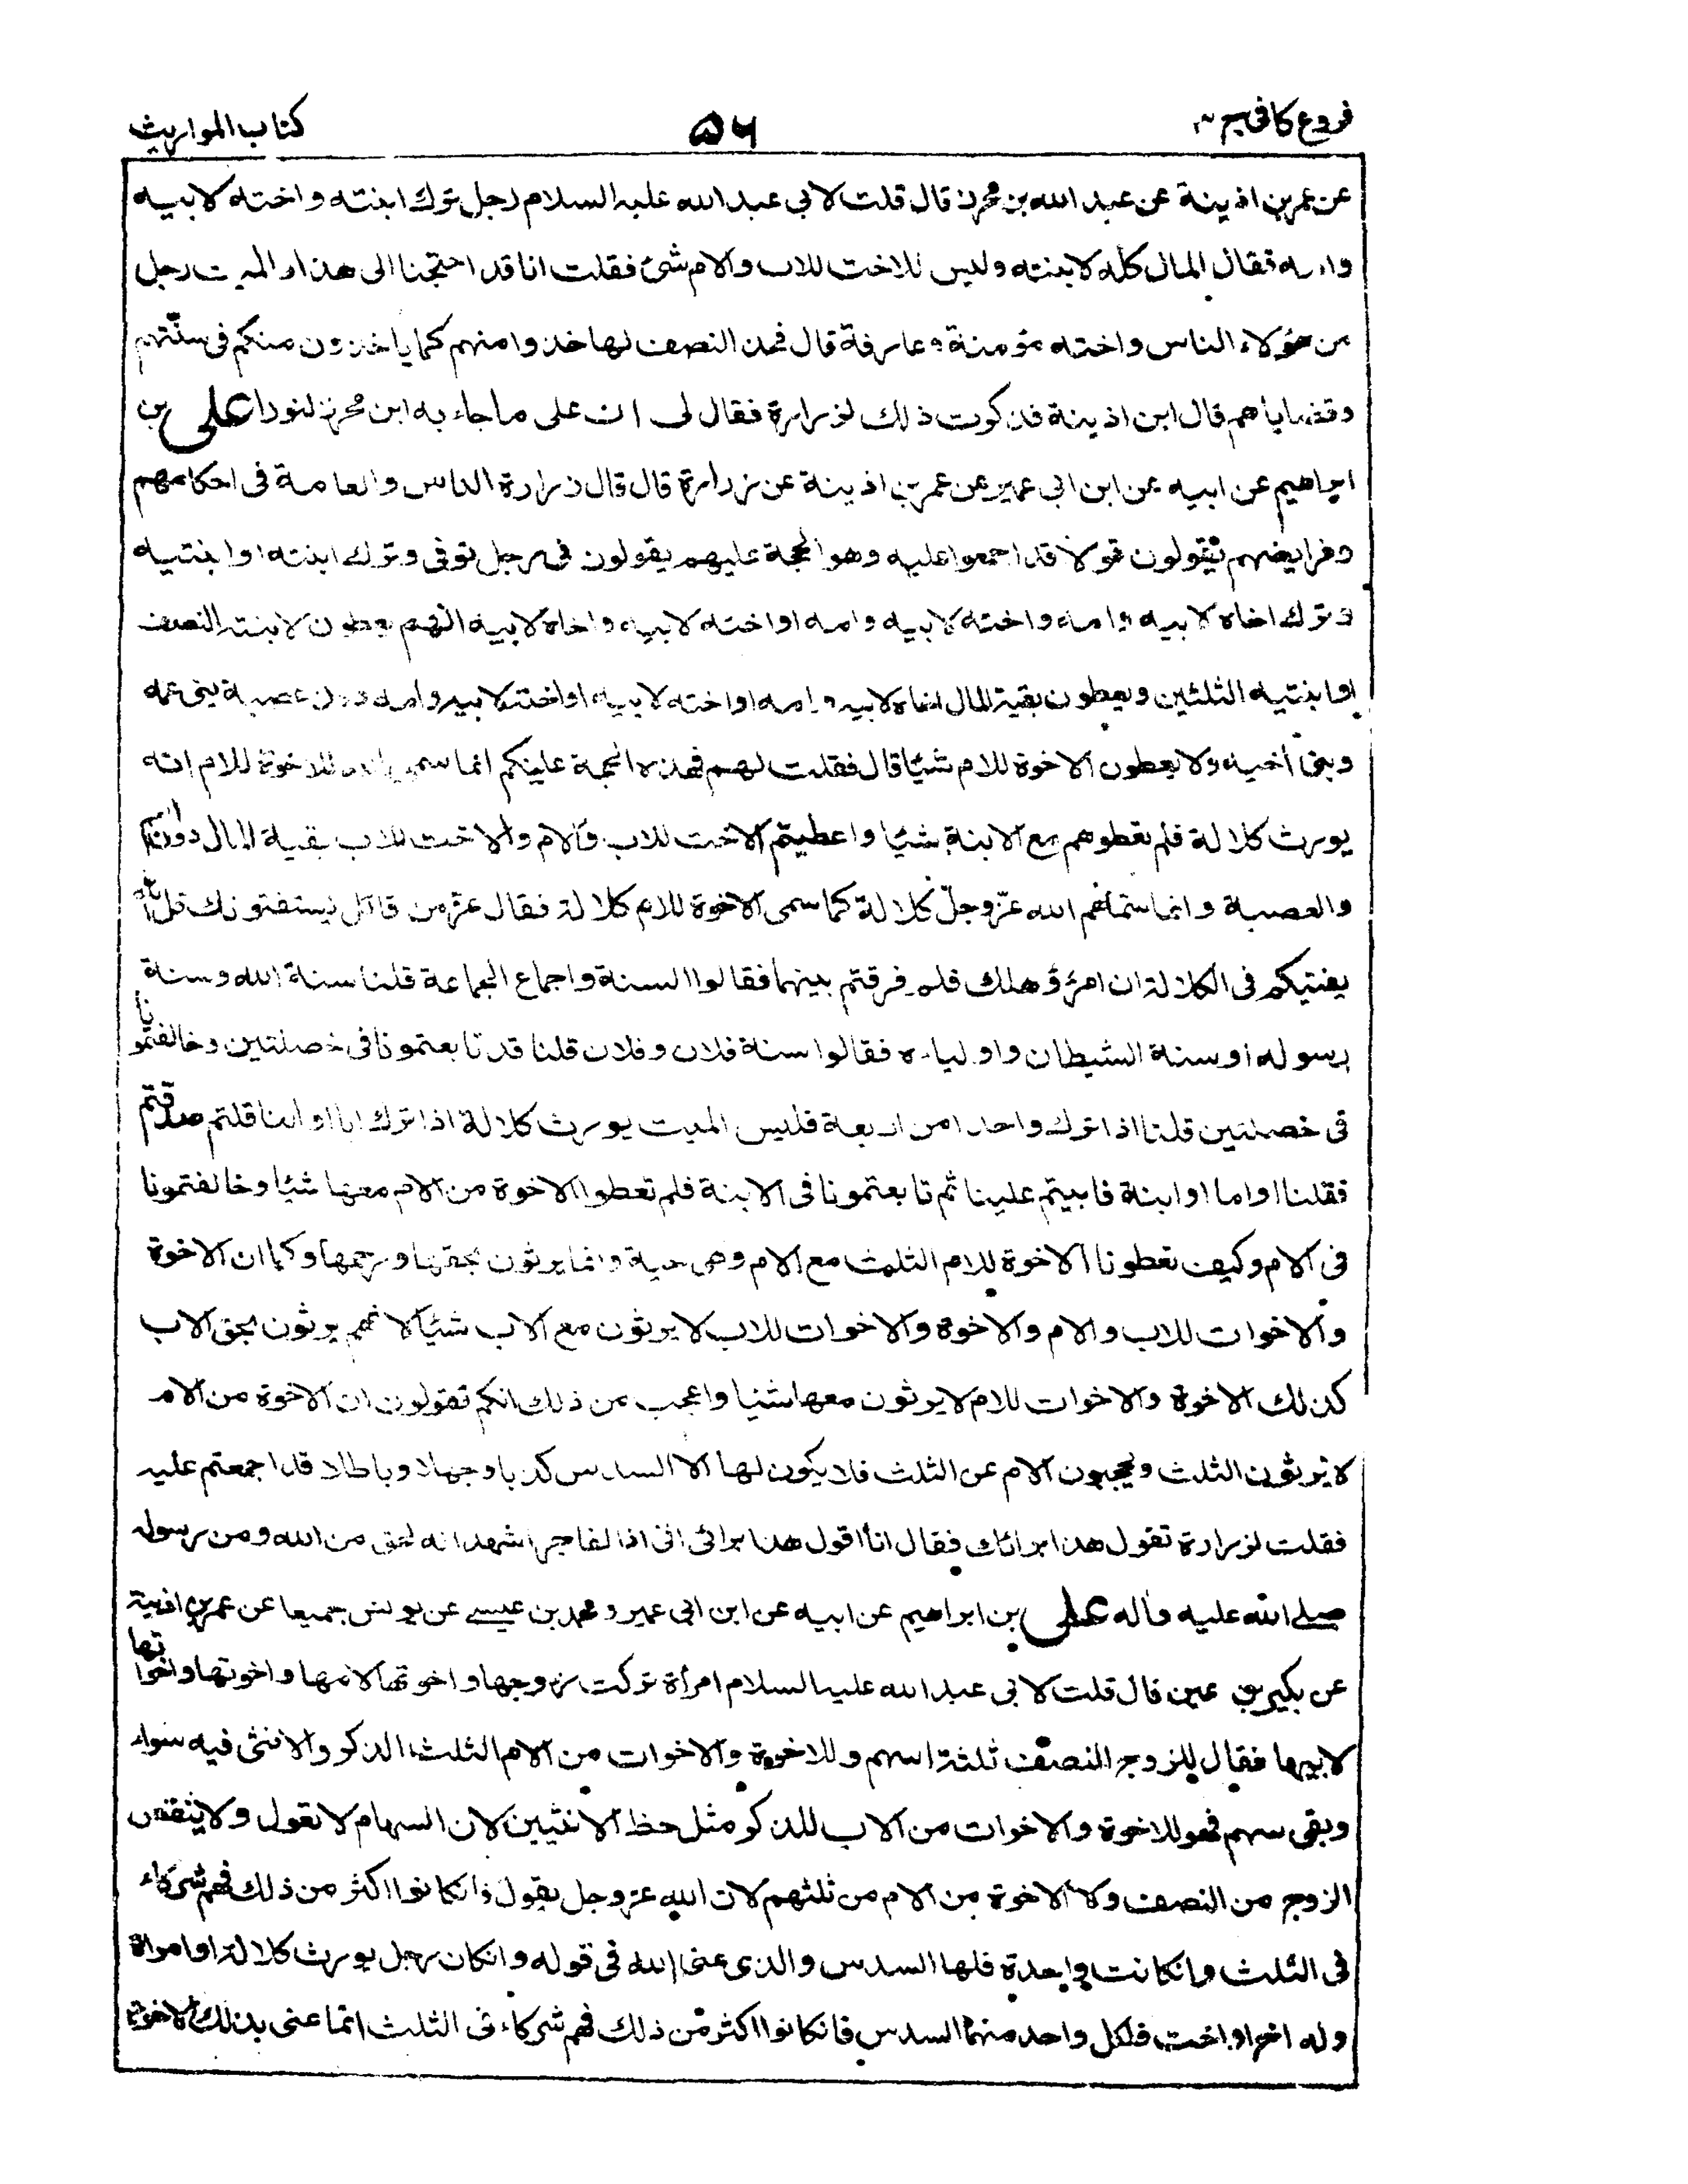 فروع کافی ج ۳
۵۶
کتاب المواریث
عن عمر بن اذینة عن عبد الله بن محرز قال قلت لابی عبد الله علیه السلام رجل ترك ابنته واخته لابیه
وامه فقال المال کله لابنته ولیس للاخت للاب والام شئ فقلت انا قد احتجنا الی هذا والمیت رجل
من هؤلاء الناس واخته مؤمنة عارفة قال فخذ النصف لها خذوا منهم کما یاخذون منکم فی سنتهم
وقضایاهم قال ابن اذینة فذکرت ذلك لزرارة فقال لی ان علی ما جاء به ابن محرز لنورا علی بن
ابراهیم عن ابیه عن ابن ابی عمیر عن عمر بن اذینة عن زرارة قال قال زرارة الناس والعامة فی احکامهم
وفرایضهم یقولون قولا قد اجمعوا علیه وهو الحجة علیهم یقولون فی رجل توفی وترك ابنته او ابنتیه
وترك اخاه لابیه وامه واخته لابیه وامه او اخته لابیه واخاه لابیه انهم یعطون لابنته النصف
او ابنتیه الثلثین ویعطون بقیة المال اخاه لابیه وامه او اخته لابیه او اخته لابیه وامه دون عصبة بنی عمه
وبنی اخیه ولا یعطون الاخوة للام شیئا قال فقلت لهم فهذه الحجة علیکم انما سمی الله للاخوة للام انه
یورث کلالة فلم تعطوهم مع الابنة شیئا واعطیتم الاخت للاب والام والاخت للاب بقیة المال دون العم
والعصبة وانما سماهم الله عز وجل کلالة کما سمی الاخوة للام کلالة فقال عز من قائل یستفتونك قل الله
یفتیکم فی الکلالة ان امرؤ هلك فلم فرقتم بینهما فقالوا السنة واجماع الجماعة قلنا سنة الله وسنة
رسوله او سنة الشیطان واولیاءه فقالوا سنة فلان وفلان قلنا قد تابعتمونا فی خصلتین وخالفتمونا
فی خصلتین قلنا اذا ترك واحدا من اربعة فلیس المیت یورث کلالة اذا ترك ابا او ابنا قلتم صدقتم
فقلنا او اما او ابنة فابیتم علینا ثم تابعتمونا فی الابنة فلم تعطوا الاخوة من الام معها شیئا وخالفتمونا
فی الام وکیف تعطونا الاخوة للام الثلث مع الام وهی حیة وانما یرثون بحقها ورحمها وکما ان الاخوة
والاخوات للاب والام والاخوة والاخوات للاب لا یرثون مع الاب شیئا لانهم یرثون بحق الاب
کذلك الاخوة والاخوات للام لا یرثون معها شیئا واعجب من ذلك انکم تقولون ان الاخوة من الام
لا یرثون الثلث ویحجبون الام عن الثلث فلا یکون لها الا السدس کذبا وجهلا وباطلا قد اجمعتم علیه
فقلت لزرارة تقول هذا برائك فقال انا اقول هذا برائی انی اذا لفاجر اشهد انه لحق من الله ومن رسوله
صلی الله علیه واله علی بن ابراهیم عن ابیه عن ابن ابی عمیر ومحمد بن عیسی عن یونس جمیعا عن عمر بن اذینة
عن بکیر بن عین قال قلت لابی عبد الله علیه السلام امرأة ترکت زوجها واخوتها لامها واخوتها واخواتها
لابیها فقال للزوج النصف ثلثة اسهم وللاخوة والاخوات من الام الثلث الذکر والانثی فیه سواء
وبقی سهم فهو للاخوة والاخوات من الاب للذکر مثل حظ الانثیین لان السهام لا تعول ولا ینقص
الزوج من النصف ولا الاخوة من الام من ثلثهم لان الله عز وجل یقول فاذا کانوا اکثر من ذلك فهم شرکاء
فی الثلث وانکانت واحدة فلها السدس والذی عنی الله فی قوله وانکان رجل یورث کلالة او امراة
وله اخ او اخت فلکل واحد منهما السدس فانکانوا اکثر من ذلك فهم شرکاء فی الثلث انما عنی بذلك الاخوة